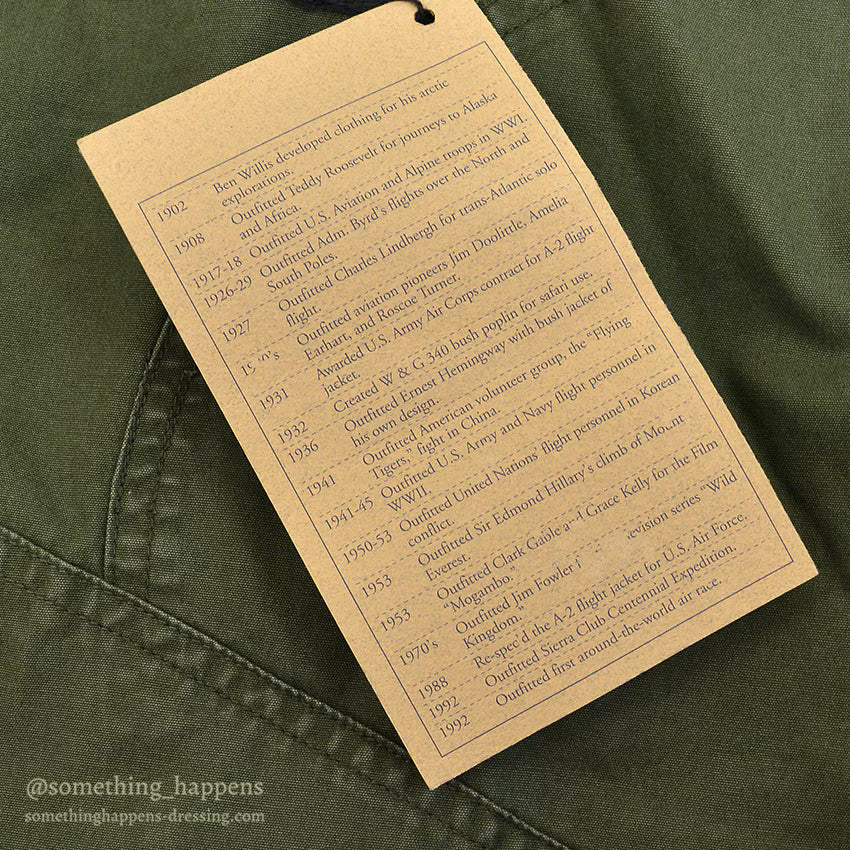 1902 Ben Willis developed clothing for his arctic
explorations.
1908 Outfitted Teddy Roosevelt for journeys to Alaska
and Africa.
1917-18 Outfitted U.S. Aviation and Alpine troops in WWI.
1926-29 Outfitted Adm. Byrd's flights over the North and
South Poles.
1927 Outfitted Charles Lindbergh for trans-Atlantic solo
flight.
Outfitted aviation pioneers Jim Doolittle, Amelia
Earhart, and Roscoe Turner.
1931 Awarded U.S. Army Air Corps contract for A-2 flight
jacket.
1932 Created W & G 340 bush poplin for safari use.
1936 Outfitted Ernest Hemingway with bush jacket of
his own design.
1941 Outfitted American volunteer group, the "Flying
Tigers," fight in China.
1941-45 Outfitted U.S. Army and Navy flight personnel in
WWII.
1950-53 Outfitted United Nations' flight personnel in Korean
conflict.
1953 Outfitted Sir Edmond Hillary's climb of Mount
Everest.
1953 Outfitted Clark Gable and Grace Kelly for the Film
"Mogambo."
1970's Outfitted Jim Fowler series "Wild
Kingdom."
1988 Re-spec'd the A-2 flight jacket for U.S. Air Force.
1992 Outfitted Sierra Club Centennial Expedition.
1992 Outfitted first around-the-world air race.
@something_happens
somethinghappens-dressing.com